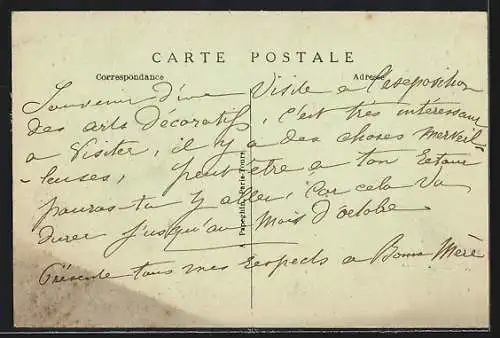 CARTE POSTALE
Correspondance
Adresse
Souvenir d'une Visite a l'exposition
des arts Décoratifs, c'est très intéressant
a Visiter, il y a des choses merveil-
-leuses, peut être a ton retour
pouras-tu y aller, Car cela Va
durer jusqu'au Mois D'octobre
Présente tous mes respects a Bonne Mère
A. Papeghin, Paris-Tours